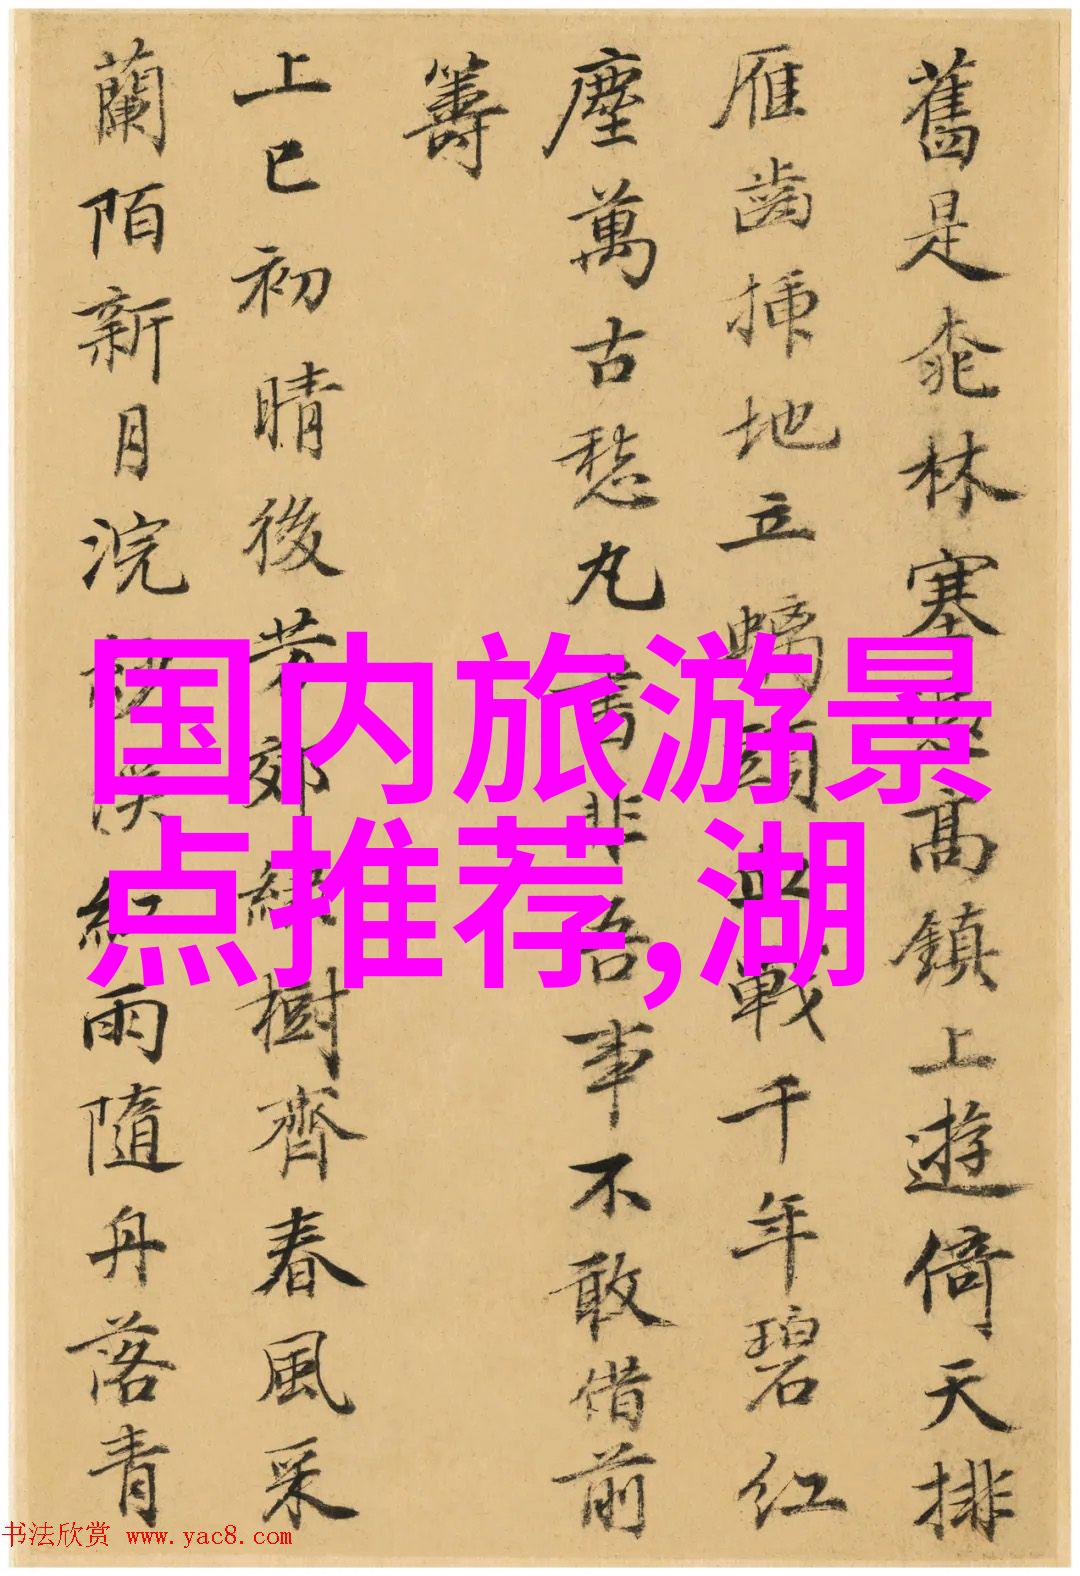 舊是桃林塞高鎮上遊倚天排
雁齒插地立螭頭血戰千年碧紅
塵萬古愁丸書非吾事不敢借前
籌
上巳初晴後芳郊綠樹齊春風采
蘭陌新月浣紗溪紅雨隨舟落青
国内旅游景
点推荐,湖
书法欣赏 www.yac8.com